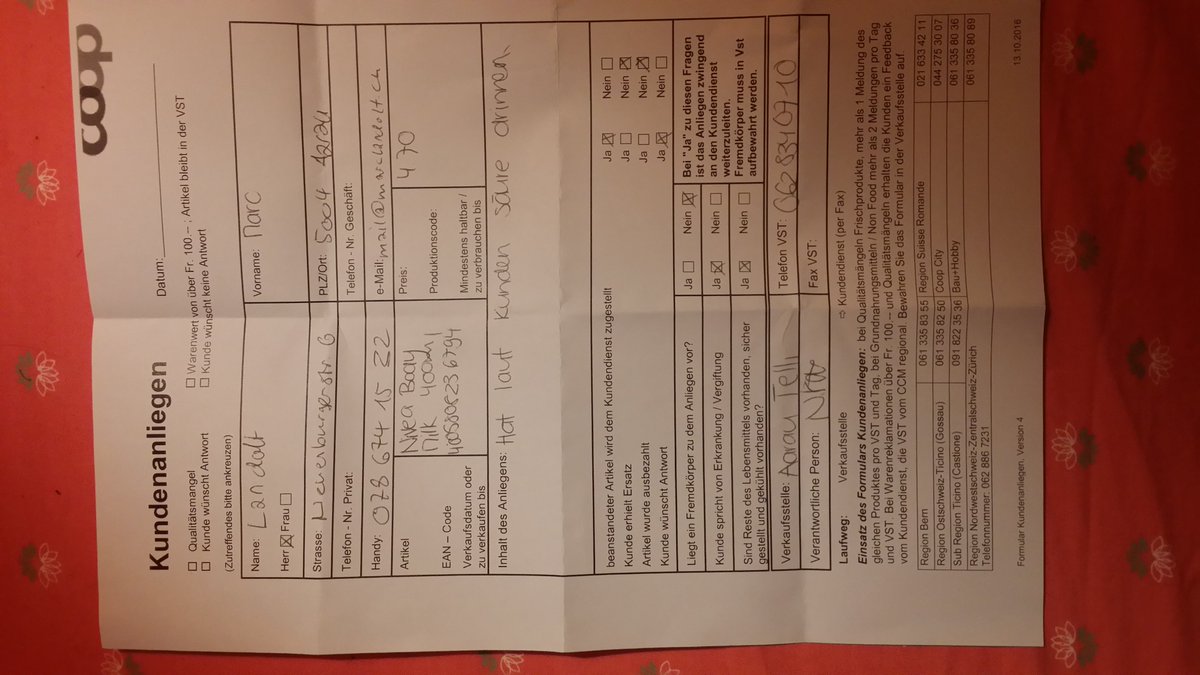 coop
Kundenanliegen
Datum:
☐ Qualitätsmangel ☐ Warenwert von über Fr. 100.– ; Artikel bleibt in der VST
☐ Kunde wünscht Antwort ☐ Kunde wünscht keine Antwort
(Zutreffendes bitte ankreuzen)
Name: Landolt Vorname: Marc
Herr ☒ Frau ☐
Strasse: PLZ/Ort: 5004
Telefon - Nr. Privat: Telefon - Nr. Geschäft:
Handy: 078 674 15 22 e-Mail: mail@marclandolt.ch
Artikel Nivea Body Preis: 4 70
Milk 400ml
Produktionscode:
EAN – Code
Verkaufsdatum oder Mindestens haltbar /
zu verkaufen bis zu verbrauchen bis
Inhalt des Anliegens: Hat laut Kunden säure drinnen
beanstandeter Artikel wird dem Kundendienst zugestellt Ja ☒ Nein ☐
Kunde erhielt Ersatz Ja ☐ Nein ☒
Artikel wurde ausbezahlt Ja ☐ Nein ☒
Kunde wünscht Antwort Ja ☒ Nein ☐
Liegt ein Fremdkörper zu dem Anliegen vor? Ja ☐ Nein ☒
Kunde spricht von Erkrankung / Vergiftung Ja ☒ Nein ☐
Sind Reste des Lebensmittels vorhanden, sicher
gestellt und gekühlt vorhanden? Ja ☒ Nein ☐
Bei "Ja" zu diesen Fragen
ist das Anliegen zwingend
an den Kundendienst
weiterzuleiten.
Fremdkörper muss in Vst
aufbewahrt werden.
Verkaufsstelle: Aarau Telli Telefon VST: 062 834 07 10
Verantwortliche Person: Fax VST:
Laufweg: Verkaufsstelle ⇨ Kundendienst (per Fax)
Einsatz des Formulars Kundenanliegen: bei Qualitätsmängeln Frischprodukte, mehr als 1 Meldung des
gleichen Produktes pro VST und Tag, bei Grundnahrungsmitteln / Non Food mehr als 2 Meldungen pro Tag
und VST. Bei Warenreklamationen über Fr. 100.-- und Qualitätsmängeln erhalten die Kunden ein Feedback
vom Kundendienst, die VST vom CCM regional. Bewahren Sie das Formular in der Verkaufsstelle auf.
Region Bern 061 335 83 55 Region Suisse Romande 021 633 42 11
Region Ostschweiz-Ticino (Gossau) 061 335 82 50 Coop City 044 275 30 07
Sub Region Ticino (Castione) 091 822 35 36 Bau+Hobby 061 335 80 36
Region Nordwestschweiz-Zentralschweiz-Zürich 061 335 80 89
Telefonnummer: 062 886 7231
Formular Kundenanliegen, Version 4 13.10.2016